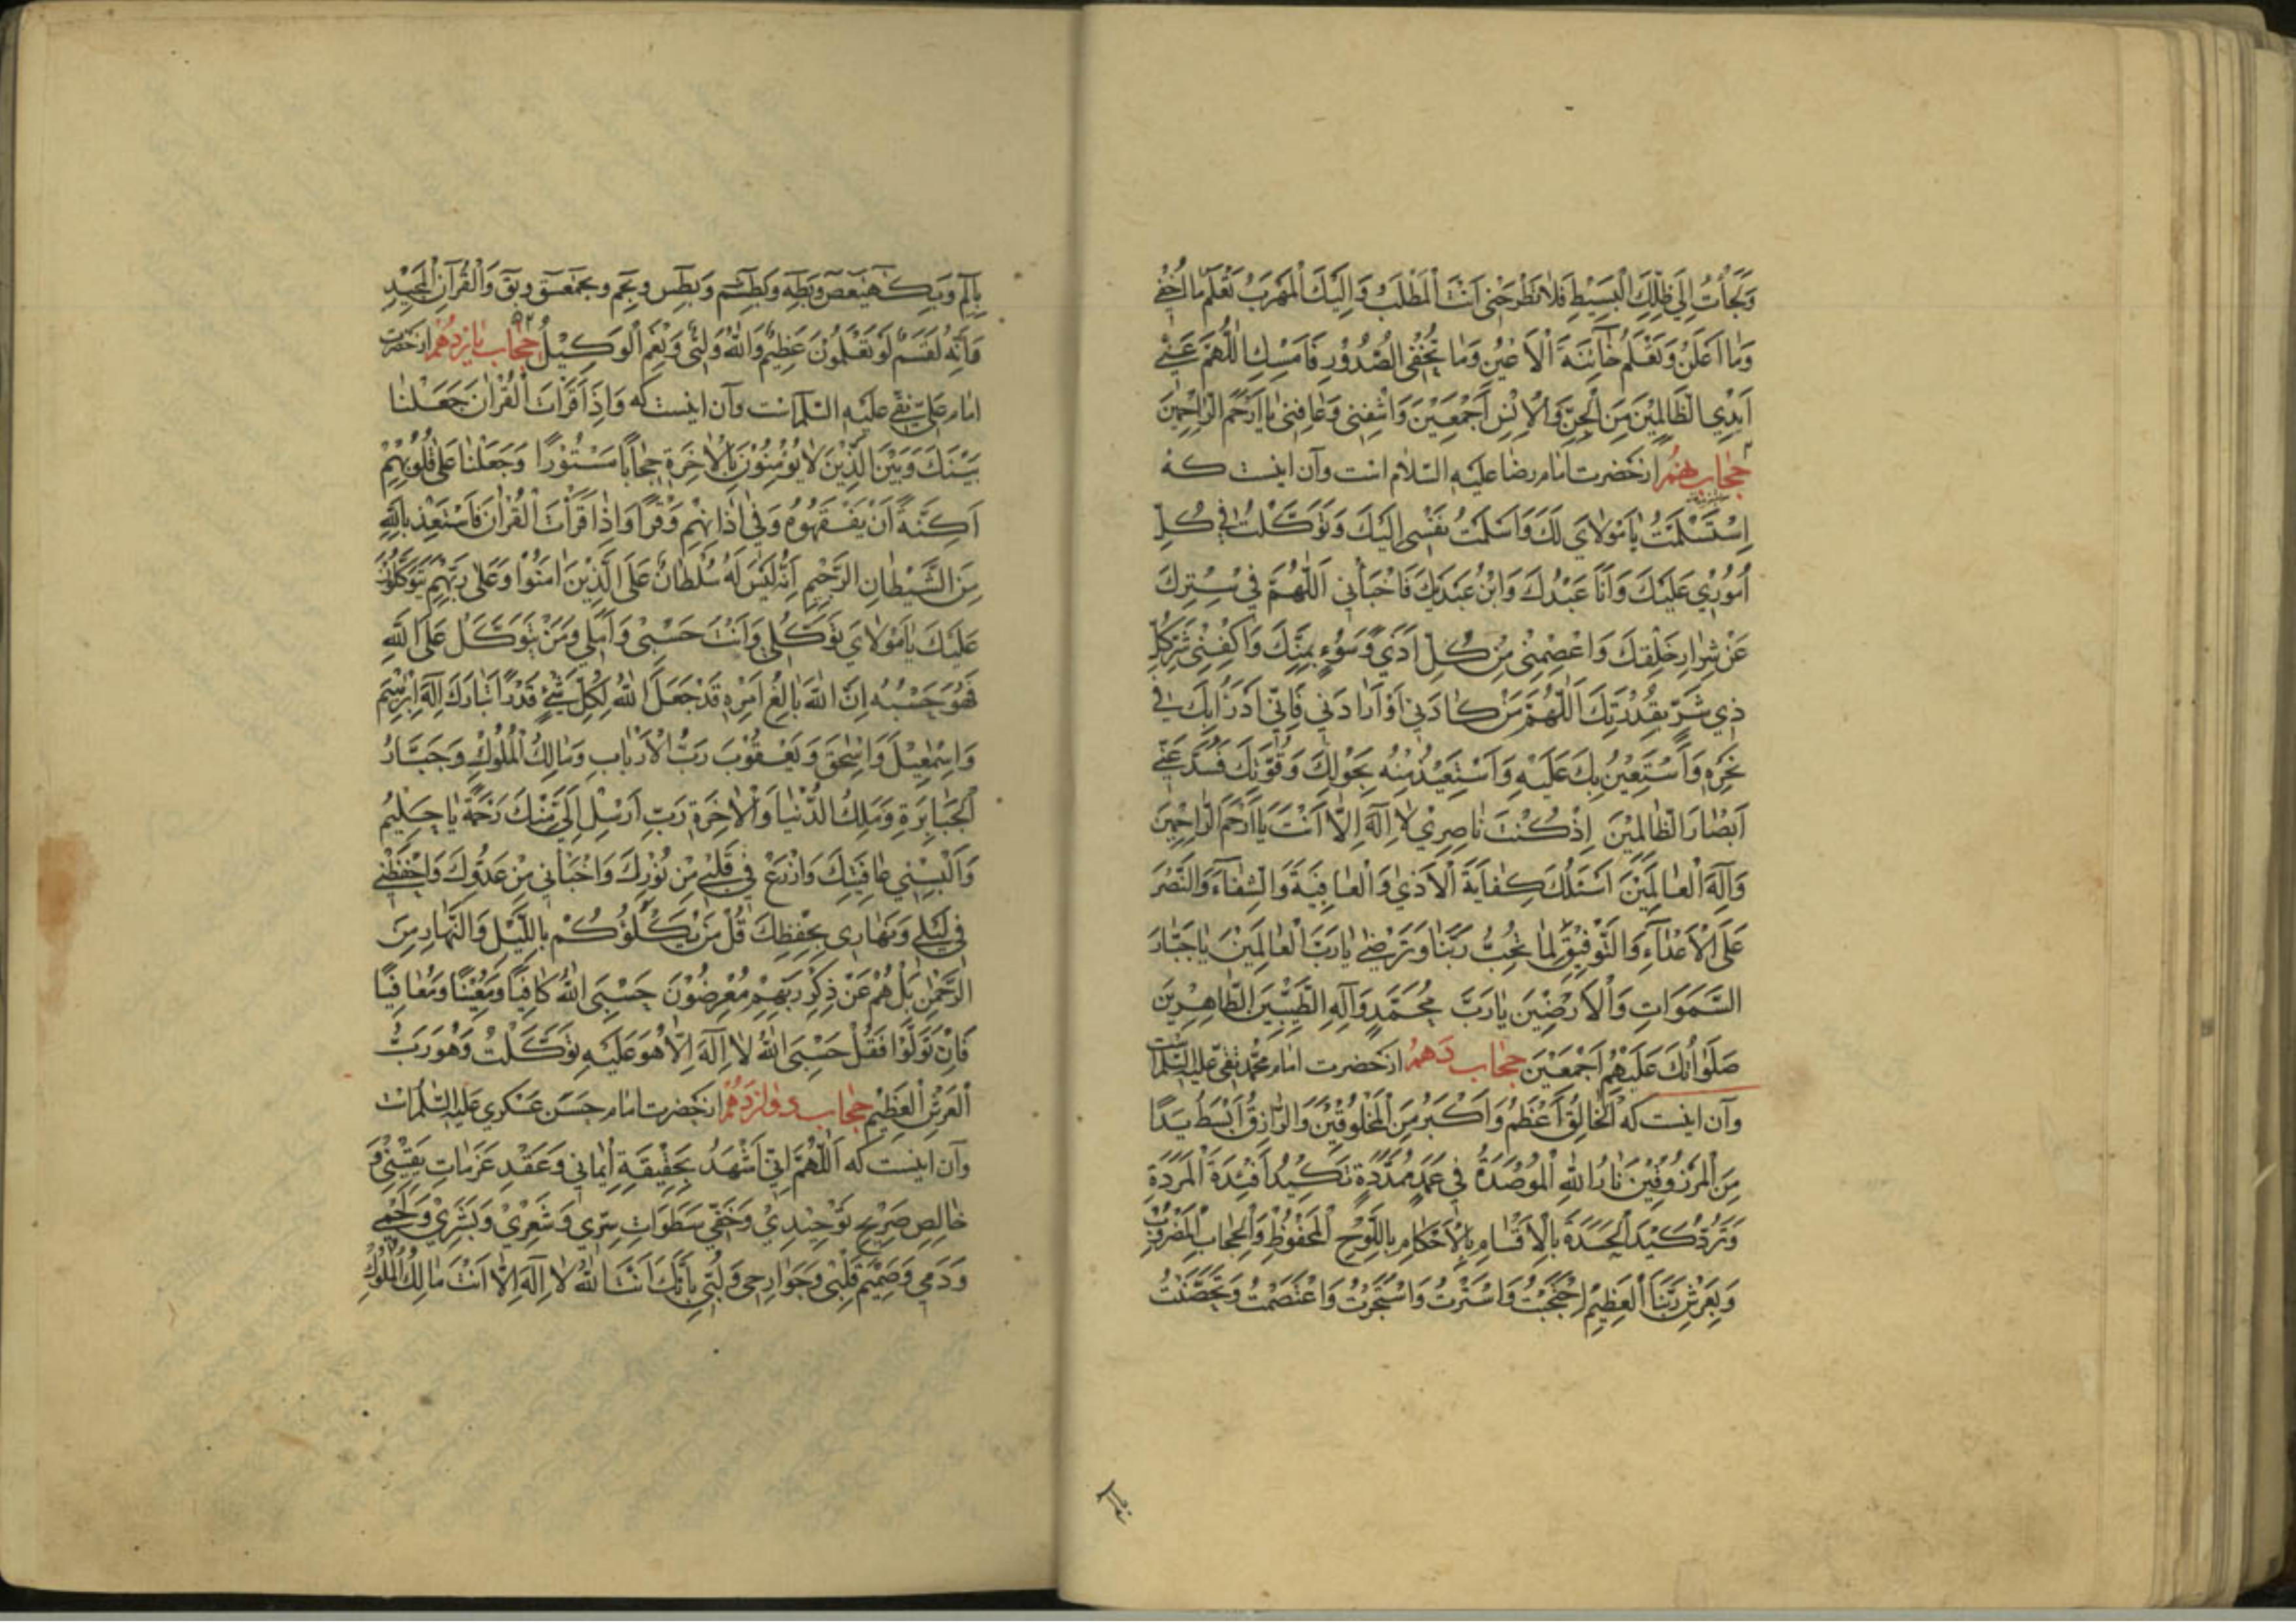 وَلَجَأْتُ اِلٰي ظِلِّكَ الْبَسِيْطِ فَلَا تَطْرَحْنِى اَنْتَ الْمَطْلَبُ وَاِلَيْكَ الْمَهْرَبُ تَعْلَمُ مَا اُخْفِي
وَمَا اُعْلِنُ وَتَعْلَمُ خَآئِنَةَ الْاَعْيُنِ وَمَا تُخْفِى الصُّدُوْرِ فَاَمْسِكِ اللّٰهُمَّ عَنِّي
اَيْدِي الظَّالِمِيْنَ مِنَ الْجِنِّ وَالْاِنْسِ اَجْمَعِيْنَ وَاشْفِنِى وَعَافِنِى يَا اَرْحَمَ الرَّاحِمِيْنَ
حجاب نهم از حضرت امام رضا عليه السّلام است وآن اينست كه
اِسْتَسْلَمْتُ يَا مَوْلَايَ لَكَ وَاَسْلَمْتُ نَفْسِى اِلَيْكَ وَتَوَكَّلْتُ فِي كُلِّ
اُمُوْرِي عَلَيْكَ وَاَنَا عَبْدُكَ وَابْنُ عَبْدَيْكَ فَاخْبَأْنِي اَللّٰهُمَّ فِي سِتْرِكَ
عَنْ شِرَارِ خَلْقِكَ وَاعْصِمْنِى مِنْ كُلِّ اَذًي وَسُوْءٍ بِمَنِّكَ وَاكْفِنِى شَرَّ كُلِّ
ذِي شَرٍّ بِقُدْرَتِكَ اَللّٰهُمَّ مَنْ كَادَنِي اَوْ اَرَادَنِي فَاِنِّي اَدْرَأُ بِكَ فِي
نَحْرِهِ وَاَسْتَعِيْنُ بِكَ عَلَيْهِ وَاَسْتَعِيْذُ مِنْهُ بِحَوْلِكَ وَقُوَّتِكَ فَسُدَّ عَنِّي
اَبْصَارَ الظَّالِمِيْنَ اِذْ كُنْتَ نَاصِرِي لَا اِلٰهَ اِلَّا اَنْتَ يَا اَرْحَمَ الرَّاحِمِيْنَ
وَاِلٰهَ الْعَالَمِيْنَ اَسْئَلُكَ كِفَايَةَ الْاَذٰي وَالْعَافِيَةَ وَالشِّفَآءَ وَالنَّصْرَ
عَلَى الْاَعْدَآءِ وَالتَّوْفِيْقَ لِمَا تُحِبُّ رَبَّنَا وَتَرْضٰي يَا رَبَّ الْعَالَمِيْنَ يَا جَبَّارَ
السَّمَوَاتِ وَالْاَرَضِيْنَ يَا رَبَّ مُحَمَّدٍ وَآلِهِ الطَّيِّبِيْنَ الطَّاهِرِيْنَ
صَلَوَاتُكَ عَلَيْهِمْ اَجْمَعِيْنَ حجاب دهم از حضرت امام محمّد تقي عليه السّلام است
وآن اينست كه اَلْخَالِقُ اَعْظَمُ وَاَكْبَرُ مِنَ الْمَخْلُوْقِيْنَ وَالرَّازِقُ اَبْسَطُ يَدًا
مِنَ الْمَرْزُوْقِيْنَ نَارُ اللهِ الْمُوْصَدَةُ فِي عَمَدٍ مُمَدَّدَةٍ تَكِيْدُ اَفْئِدَةَ الْمَرَدَةِ
وَتَرُدُّ كَيْدَ الْحَسَدَةِ بِالْاَقْسَامِ بِالْاَحْكَامِ بِاللَّوْحِ الْمَحْفُوْظِ وَالْحِجَابِ الْمَضْرُوْبِ
وَبِعَرْشِ رَبِّنَا الْعَظِيْمِ احْتَجَبْتُ وَاسْتَتَرْتُ وَاسْتَجَرْتُ وَاعْتَصَمْتُ وَتَحَصَّنْتُ
بِالٓمٓ وَبِكٓهٰيٰعٓصٓ وَبِطٰهٰ وَبِطٰسٓمٓ وَبِطٰسٓ وبِحٰمٓ وبِحٰمٓعٓسٓقٓ وبِقٓ وَالْقُرْآنِ الْمَجِيْدِ
فَاِنَّهُ لَقَسَمٌ لَوْ تَعْلَمُوْنَ عَظِيْمٌ وَاللهُ وَلِيِّي وَنِعْمَ الْوَكِيْلُ حجاب يازدهم از حضرت
امام علي نقي عليه السّلام است وآن اينست كه وَاِذَا قَرَاْتَ الْقُرْاٰنَ جَعَلْنَا
بَيْنَكَ وَبَيْنَ الَّذِيْنَ لَا يُؤْمِنُوْنَ بِالْاٰخِرَةِ حِجَابًا مَسْتُوْرًا وَجَعَلْنَا عَلٰى قُلُوْبِهِمْ
اَكِنَّةً اَنْ يَفْقَهُوْهُ وَفِي اٰذَانِهِمْ وَقْرًا وَاِذَا قَرَاْتَ الْقُرْاٰنَ فَاسْتَعِذْ بِاللهِ
مِنَ الشَّيْطَانِ الرَّجِيْمِ اِنَّهُ لَيْسَ لَهُ سُلْطَانٌ عَلَى الَّذِيْنَ اٰمَنُوْا وَعَلٰى رَبِّهِمْ يَتَوَكَّلُوْنَ
عَلَيْكَ يَا مَوْلَايَ تَوَكُّلِي وَاَنْتَ حَسْبِى وَاَمَلِي وَمَنْ يَتَوَكَّلْ عَلَى اللهِ
فَهُوَ حَسْبُهُ اِنَّ اللهَ بَالِغُ اَمْرِهِ قَدْ جَعَلَ اللهُ لِكُلِّ شَيْءٍ قَدْرًا تَبَارَكَ اِلٰهُ اِبْرٰهِيْمَ
وَاِسْمٰعِيْلَ وَاِسْحٰقَ وَيَعْقُوْبَ رَبُّ الْاَرْبَابِ وَمَالِكُ الْمُلُوْكِ وَجَبَّارُ
الْجَبَابِرَةِ وَمَلِكُ الدُّنْيَا وَالْاٰخِرَةِ رَبِّ اَرْسِلْ اِلَيَّ مِنْكَ رَحْمَةً يَا حَلِيْمُ
وَاَلْبِسْنِي عَافِيَتَكَ وَازْرَعْ فِي قَلْبِي مِنْ نُوْرِكَ وَاخْبَأْنِي مِنْ عَدُوِّكَ وَاحْفَظْنِي
فِي لَيْلِي وَنَهَارِى بِحِفْظِكَ قُلْ مَنْ يَكْلَؤُكُمْ بِاللَّيْلِ وَالنَّهَارِ مِنَ
الرَّحْمٰنِ بَلْ هُمْ عَنْ ذِكْرِ رَبِّهِمْ مُعْرِضُوْنَ حَسْبِيَ اللهُ كَافِيًا وَمُعِيْنًا وَمُعَافِيًا
فَاِنْ تَوَلَّوْا فَقُلْ حَسْبِيَ اللهُ لَا اِلٰهَ اِلَّا هُوَ عَلَيْهِ تَوَكَّلْتُ وَهُوَ رَبُّ
الْعَرْشِ الْعَظِيْمِ حجاب دوازدهم از حضرت امام حسن عسكري عليه السّلام است
وآن اينست كه اَللّٰهُمَّ اِنِّي اَشْهَدُ بِحَقِيْقَةِ اِيْمَانِي وَعَقْدِ عَزَمَاتِ يَقِيْنِي وَ
خَالِصِ صَرِيْحِ تَوْحِيْدِيْ وَخَفِيِّ سَطَوَاتِ سِرِّي وَشَعْرِيْ وَبَشَرِيْ وَلَحْمِي
وَدَمِي وَصَمِيْمِ قَلْبِى وَجَوَارِحِى وَلُبِّي بِاَنَّكَ اَنْتَ اللهُ لَا اِلٰهَ اِلَّا اَنْتَ مَالِكُ الْمُلُوْكِ